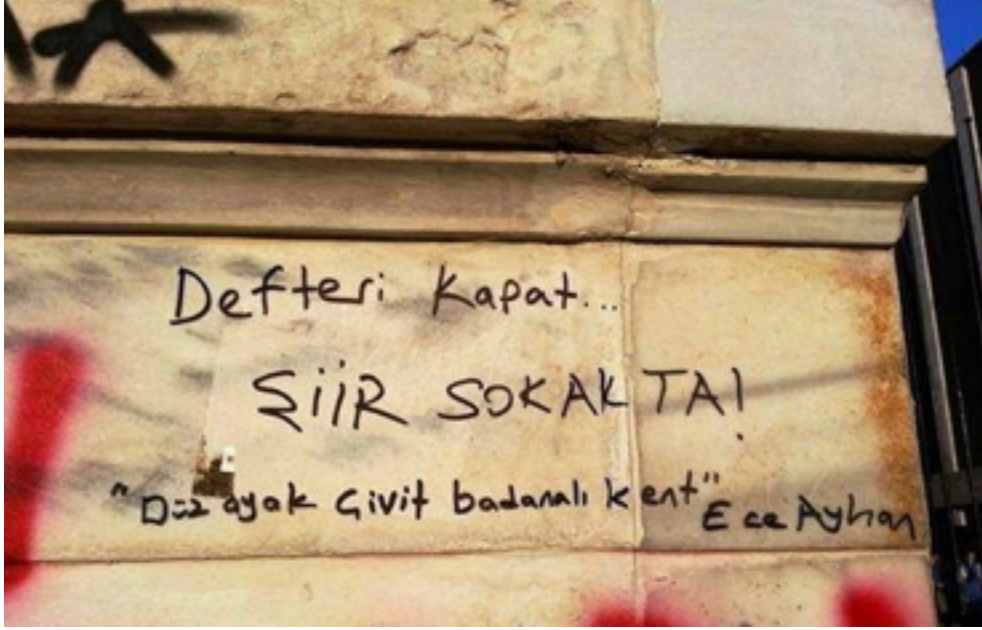 Defteri Kapat...
ŞiiR SOKAKTA!
"Düz ayak Çivit badanalı kent"
Ece Ayhan